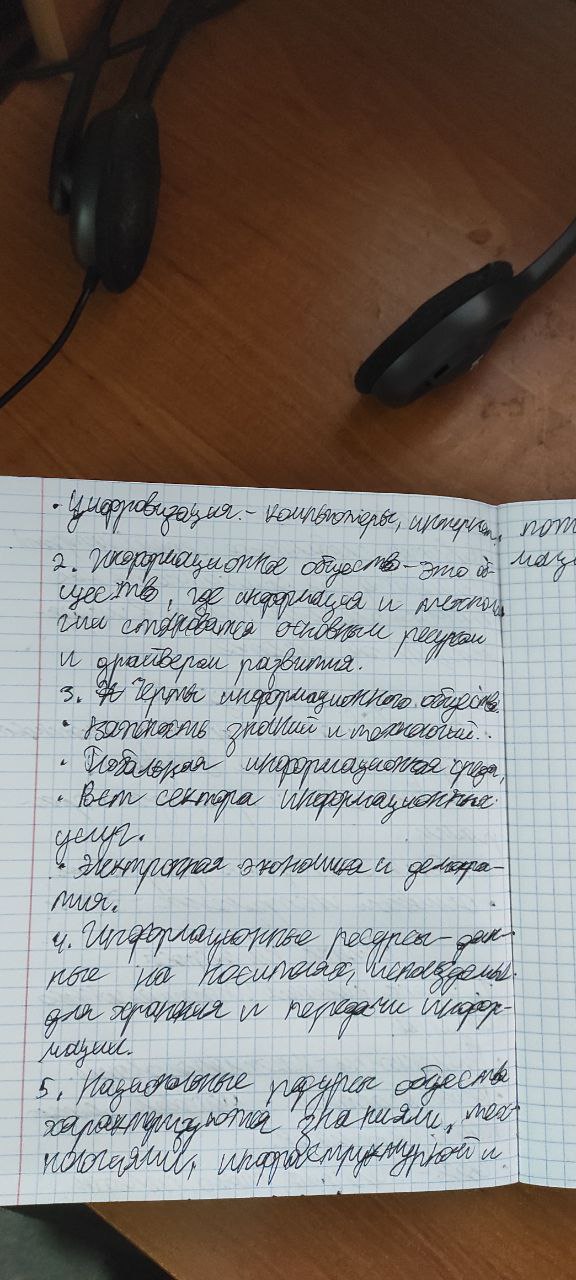 · Цифровизация. - компьютеры, интернет.
2. Информационное общество - это об-
щество, где информация и техноло
гии становятся основным ресурсом
и драйвером развития.
3. Черты информационного общества.
· важность знаний и технологий.
· Глобальная информационная среда,
· Рост сектора информационных
услуг.
· Электронная экономика и демокра-
тия.
4. Информационные ресурсы - дан-
ные на носителях, используемые
для хранения и передачи инфор-
мации.
5. Национальные ресурсы общества
характеризуются знаниями, тех-
нологиями, инфраструктурой и
пот
маци